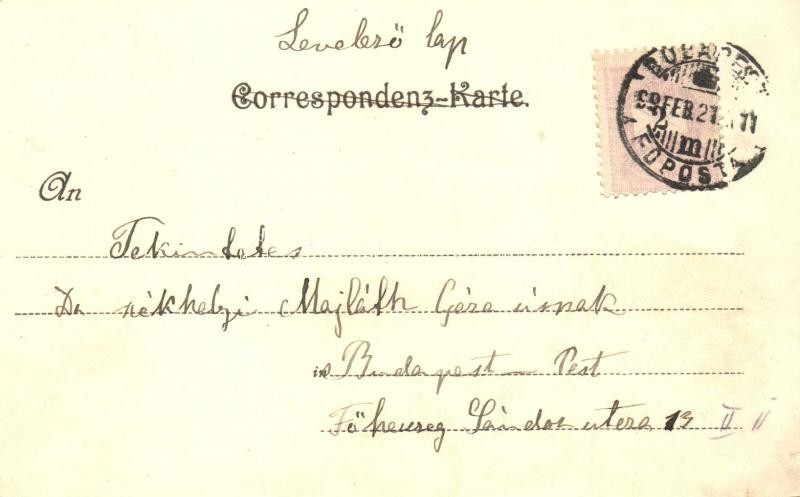 Levelező lap
Correspondenz-Karte.
BUDAPEST
98 FEB. 21
FŐPOSTA
An
Tekintetes
Dr székhelyi Majláth Géza úrnak
in Budapest – Pest
Főherczeg Sándor utcza 13 II 11